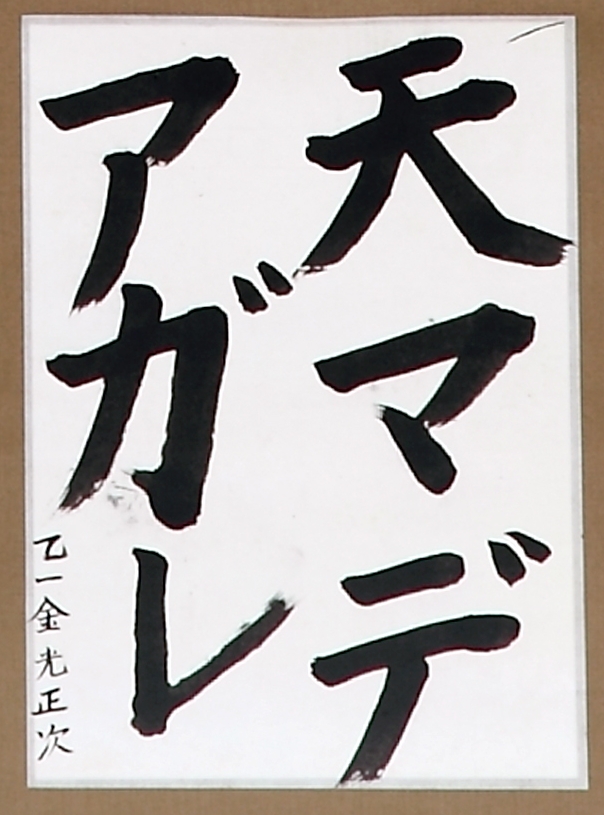 天マデ
アガレ
乙一金光正次